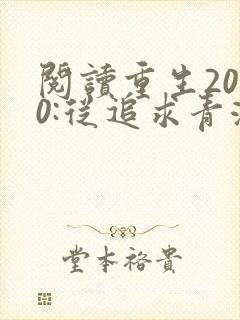 閱讀重生20
0:從追求青
堂本裕貴